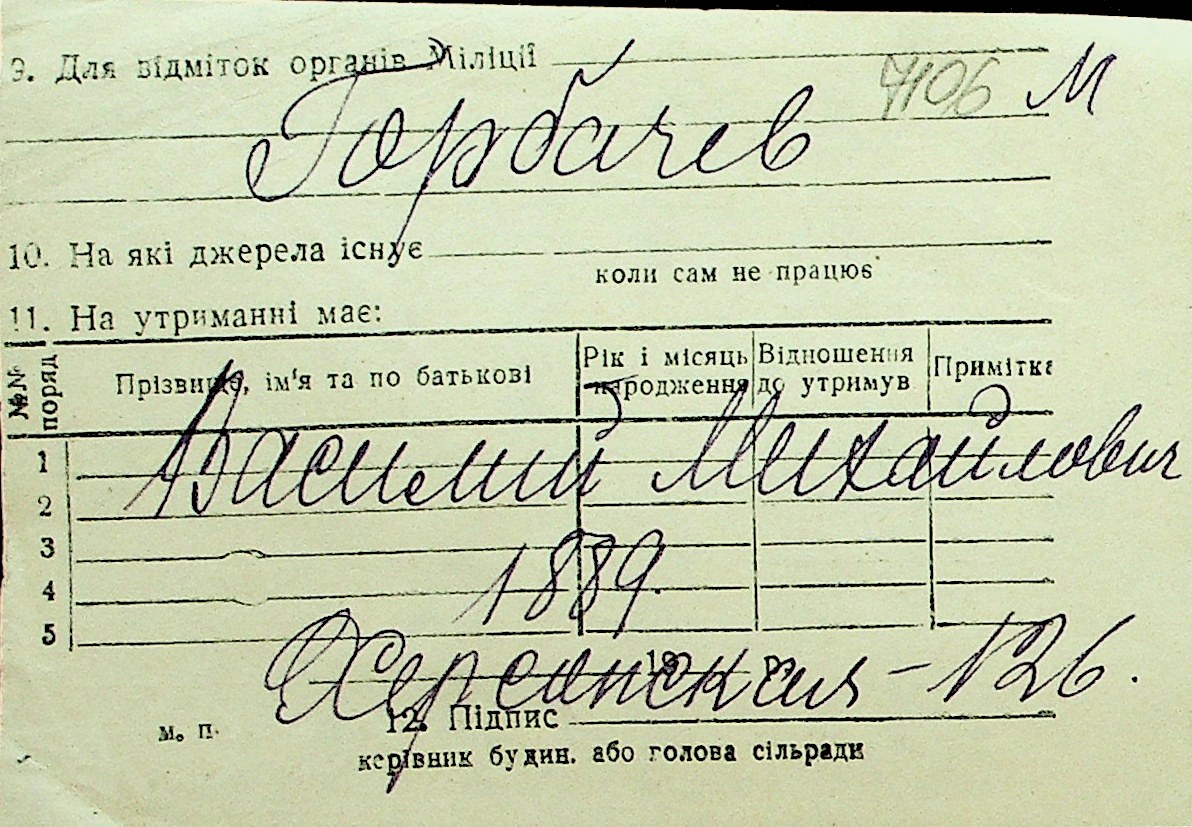 9. Для відміток органів Міліції
7106 М
Горбачев
10. На які джерела існує
коли сам не працює
11. На утриманні має:
№№ поряд Прізвище, ім'я та по батькові Рік і місяць народження Відношення до утримув Примітка
1 Василий Михайлович
2
3
4 1889.
5
Херсонская – 126.
м. п. 12. Підпис
керівник будин. або голова сільради